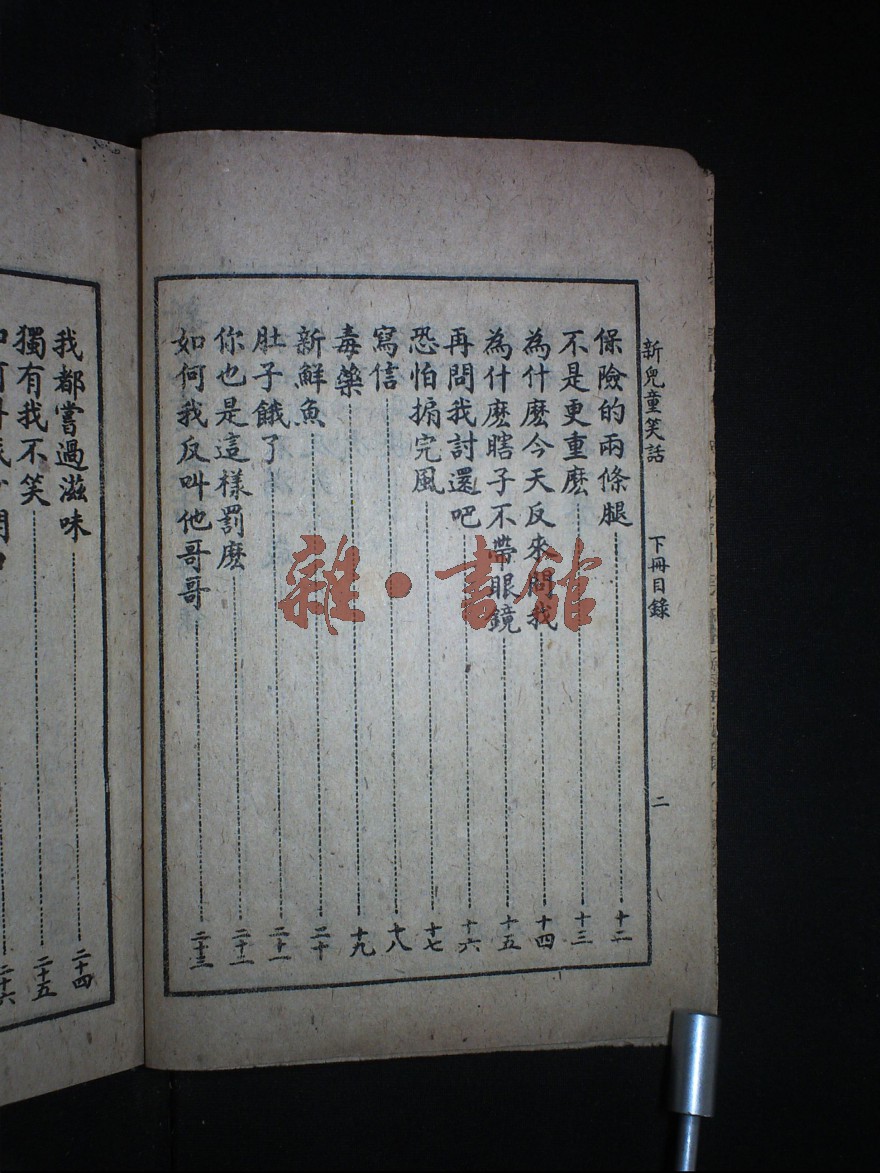 新兒童笑話 下冊目錄 二
保險的兩條腿 十二
不是更重麽 十三
為什麽今天反來問我 十四
為什麽瞎子不帶眼鏡 十五
再問我討還吧 十六
恐怕搧完風 十七
寫信 十八
毒藥 十九
新鮮魚 二十
肚子餓了 二十一
你也是這樣罰麽 二十二
如何我反叫他哥哥 二十三
我都嘗過滋味 二十四
獨有我不笑 二十五
二十六
雜·書館